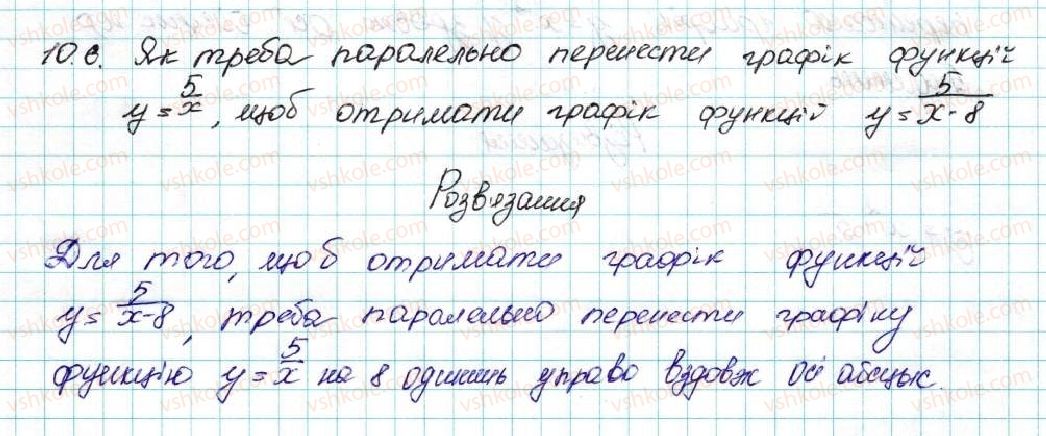 10.6. Як треба паралельно перенести графік функцій
y = 5/x, щоб отримати графік функцій y = 5/(x-8)
Розвязання
Для того, щоб отримати графік функцій
y = 5/(x-8), треба паралельно перенести графіку
функцію y = 5/x на 8 одиниць управо вздовж осі абсцис.